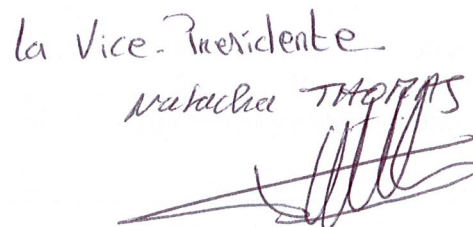 la Vice-Presidente
Natacha THOMAS